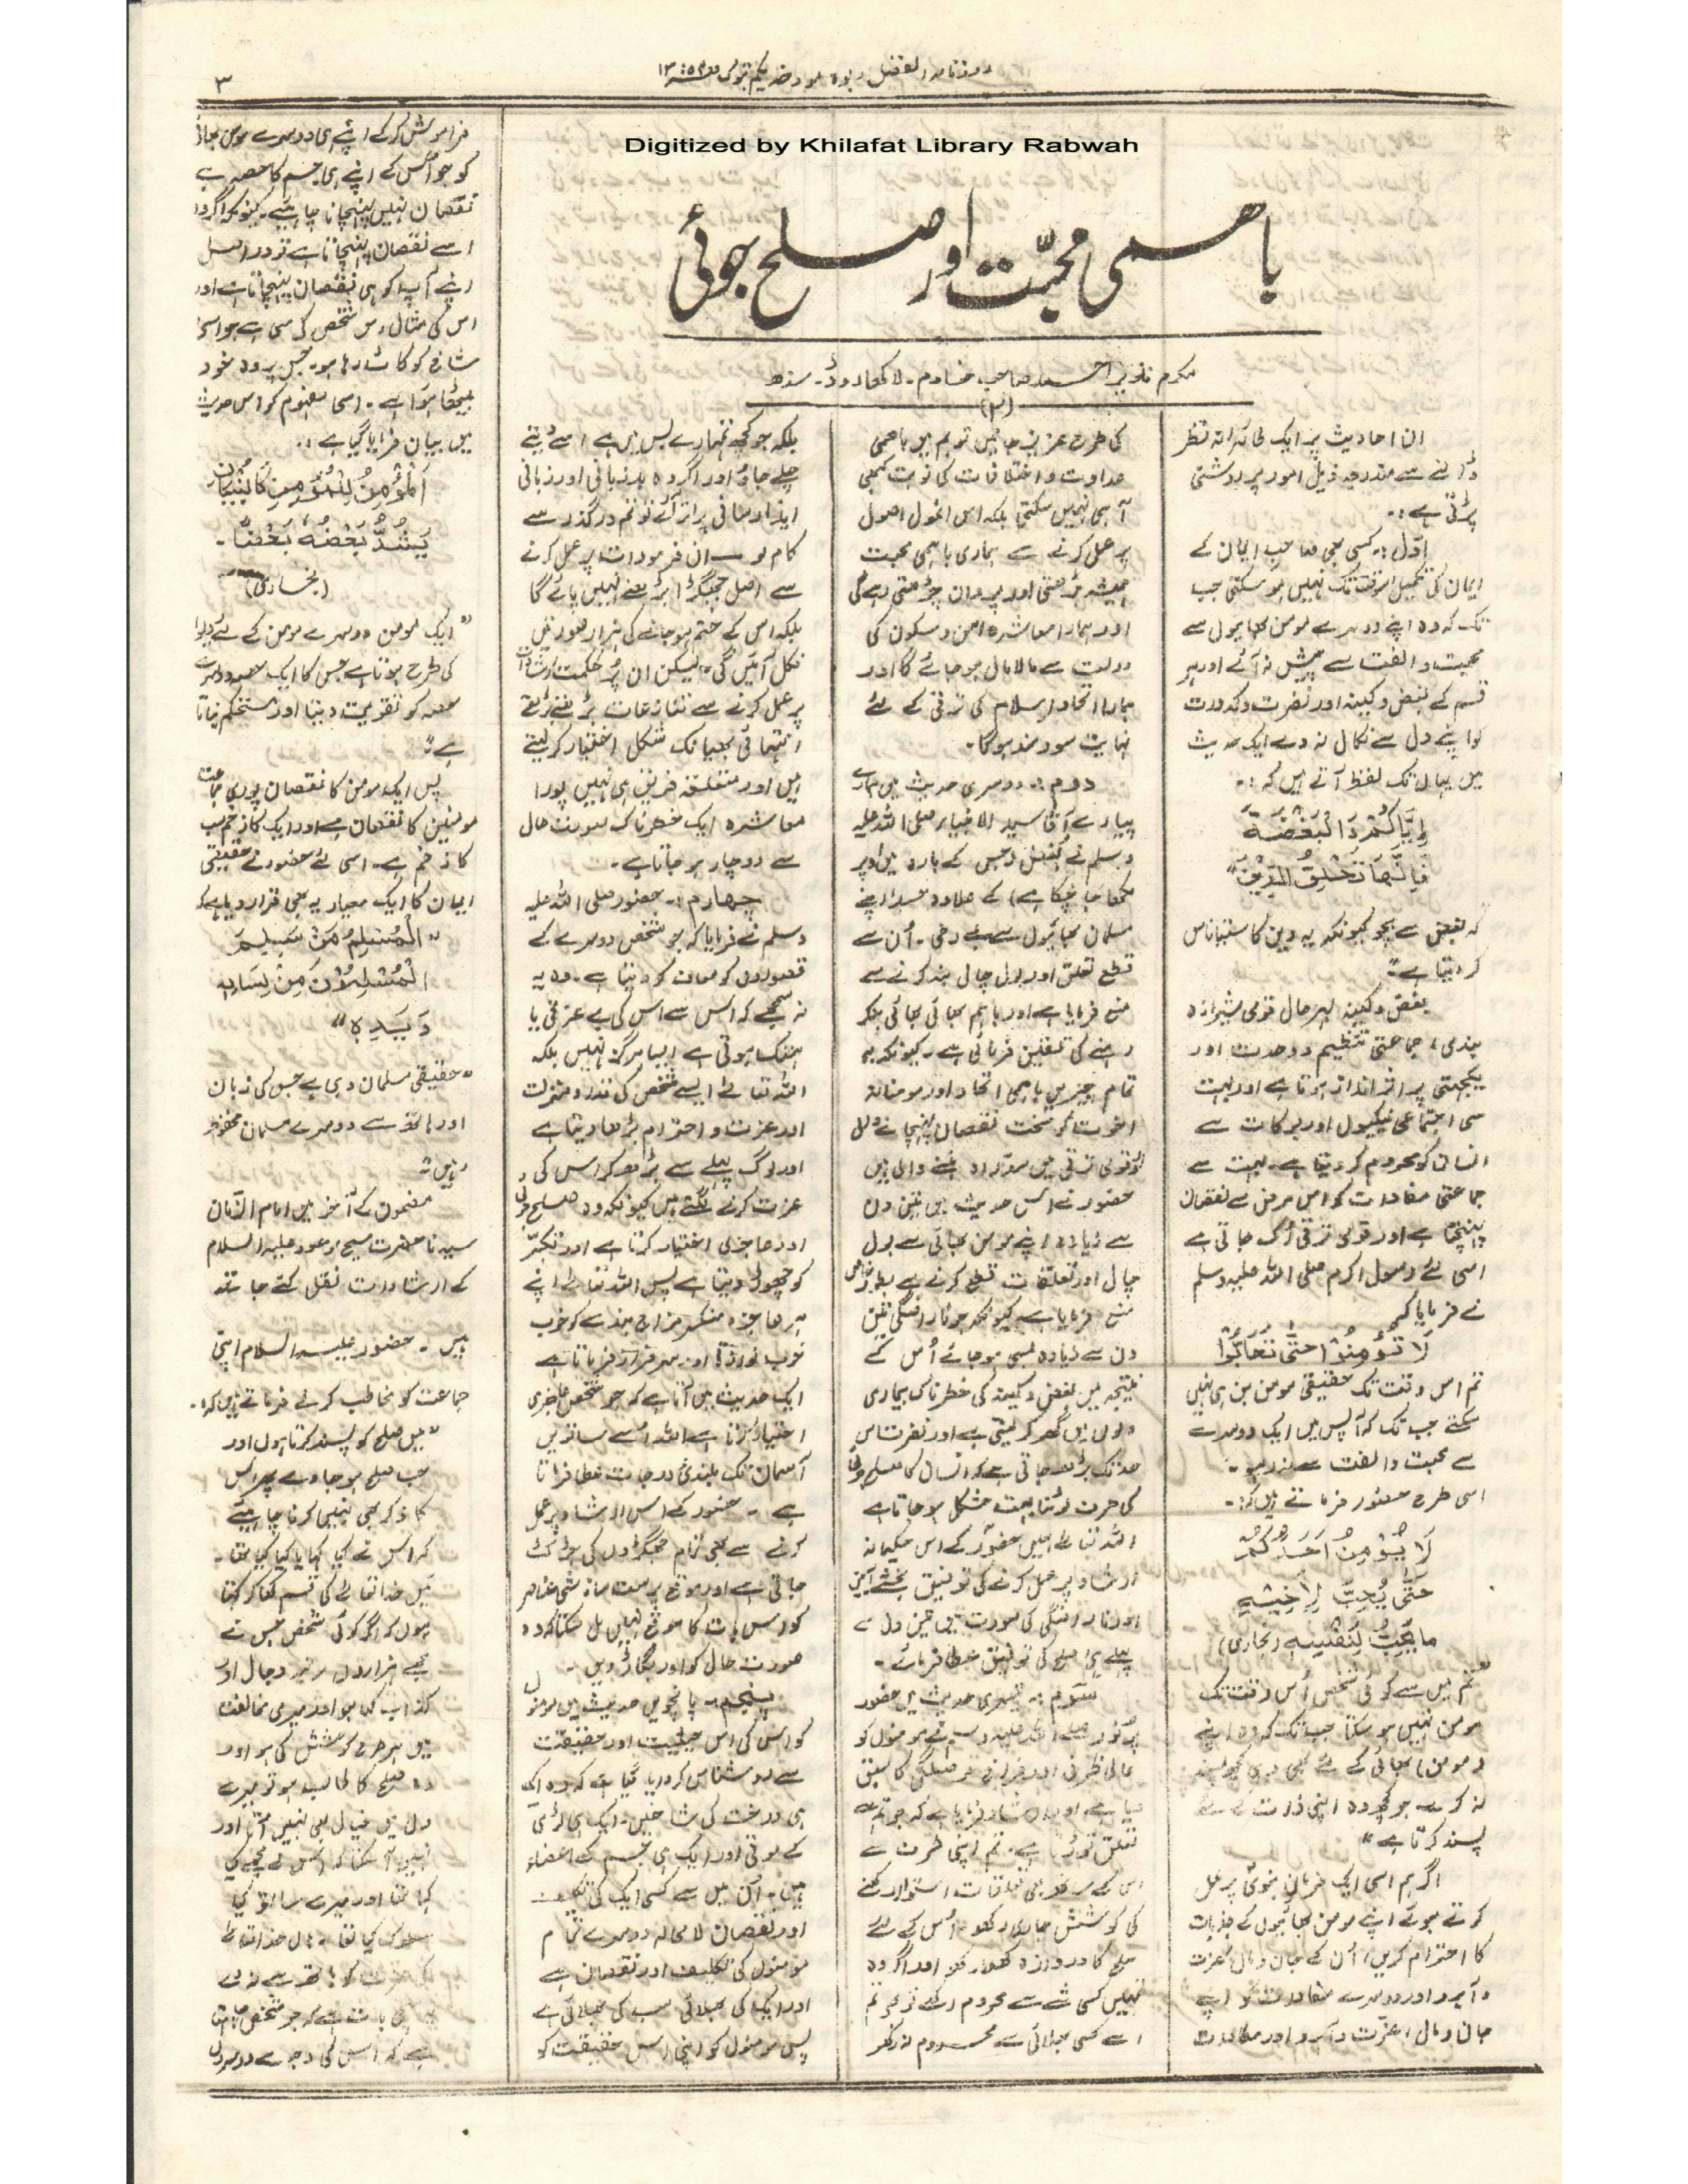 روزنامہ الفضل ربوہ مورخہ یکم تبوک
۳
Digitized by Khilafat Library Rabwah
باہمی محبّت اور صلح جوئی
مکرم تنویر احمد صاحب خادم۔ لاکھا روڈ۔ سندھ
(۲)
ان احادیث پر ایک طائرانہ نظر
ڈالنے سے مندرجہ ذیل امور پر روشنی
پڑتی ہے :۔
اوّل :۔ کسی بھی صاحب ایمان کے
ایمان کی تکمیل اسوقت تک نہیں ہو سکتی جب
تک کہ وہ اپنے دوسرے مومن بھائیوں سے
محبت و الفت سے پیش نہ آئے اور ہر
قسم کے بغض و کینہ اور نفرت و کدورت
کو اپنے دل سے نکال نہ دے ایک حدیث
میں یہاں تک لفظ آتے ہیں کہ :۔
اِیَّاکُمْ وَالْبَغْضَۃَ
فَاِنَّھَا تَحْلِقُ الدِّیْنَ"
کہ بغض سے بچو کیونکہ یہ دین کا ستیاناس
کر دیتا ہے"
بغض و کینہ بہرحال قومی شیرازہ
بندی، جماعتی تنظیم و وحدت اور
یکجہتی پر اثر انداز ہوتا ہے اور بہت
سی اجتماعی نیکیوں اور برکات سے
انسان کو محروم کر دیتا ہے۔ بہت سے
جماعتی مفادات کو اس مرض سے نقصان
پہنچتا ہے اور قومی ترقی رُک جاتی ہے
اسی لئے رسول اکرم صلی اللہ علیہ وسلم
نے فرمایا کہ
لَا تُؤْمِنُوْا حَتّٰی تَحَابُّوْا
تم اس وقت تک حقیقی مومن بن ہی نہیں
سکتے جب تک کہ آپس میں ایک دوسرے
سے محبت و الفت سے نہ رہو۔
اسی طرح حضور فرماتے ہیں کہ:۔
لَا یُؤْمِنُ اَحَدُکُمْ
حَتّٰی یُحِبَّ لِاَخِیْہِ
مَا یُحِبُّ لِنَفْسِہٖ (بخاری)
"تم میں سے کوئی شخص اُس وقت تک
مومن نہیں ہو سکتا جب تک کہ وہ اپنے
(مومن) بھائی کے لئے بھی وہی کچھ پسند
نہ کرے جو کچھ وہ اپنی ذات کے لئے
پسند کرتا ہے"
اگر ہم اسی ایک فرمانِ نبویؐ پر عمل
کرتے ہوئے اپنے مومن بھائیوں کے جذبات
کا احترام کریں، اُن کے جان و مال، عزت
و آبرو اور دوسرے مفادات کو اپنے
جان و مال، عزّت و آبرو اور مفادات
کی طرح عزیز جانیں تو ہم میں باہمی
عداوت و اختلافات کی نوبت کبھی
آ ہی نہیں سکتی بلکہ اس انمول اصول
پر عمل کرنے سے ہماری باہمی محبت
ہمیشہ بڑھتی اور پروان چڑھتی رہے گی
اور ہمارا معاشرہ امن و سکون کی
دولت سے مالامال ہو جائے گا اور
ہمارا اتحاد اسلام کی ترقی کے لئے
نہایت سودمند ہوگا۔
دوم :۔ دوسری حدیث میں ہمارے
پیارے آقا سید الانبیاء صلی اللہ علیہ
وسلم نے بغض (جس کے بارہ میں اوپر
لکھا جا چکا ہے) کے علاوہ حسد، اپنے
مسلمان بھائیوں سے بے رخی۔ اُن سے
قطع تعلق اور بول چال بند کرنے سے
منع فرمایا ہے اور باہم بھائی بھائی بنکر
رہنے کی تلقین فرمائی ہے۔ کیونکہ یہ
تمام چیزیں باہمی اتحاد اور مومنانہ
اخوت کو سخت نقصان پہنچانے والی
اور قومی ترقی میں سدّ راہ بننے والی ہیں
حضور نے اس حدیث میں تین دن
سے زیادہ اپنے مومن بھائی سے بول
چال اور تعلقات قطع کرنے سے بطور خاص
منع فرمایا ہے کیونکہ جو ناراضگی تین
دن سے زیادہ لمبی ہو جائے اُس کے
نتیجہ میں بغض و کینہ کی خطرناک بیماری
دلوں میں گھر کر لیتی ہے اور نفرت اس
حد تک بڑھ جاتی ہے کہ انسان کا صلح جوئی
کی طرف لوٹنا بہت مشکل ہو جاتا ہے
اللہ تعالےٰ ہمیں حضورؐ کے اس حکیمانہ
ارشاد پر عمل کرنے کی توفیق بخشے آمین
اور ناراضگی کی صورت میں تین دن سے
پہلے ہی صلح کی توفیق عطا فرمائے۔
سوم :۔ تیسری حدیث میں حضور
پُرنور صلے اللہ علیہ وسلم نے مومنوں کو
عالی ظرفی اور فراخ حوصلگی کا سبق
دیا ہے اور ارشاد فرمایا ہے کہ جو تم سے
تعلق توڑتا ہے۔ تم اپنی طرف سے
اس کے ساتھ بھی تعلقات استوار رکھنے
کی کوشش جاری رکھو۔ اُس کے لئے
صلح کا دروازہ کھلا رکھو اور اگر وہ
تمہیں کسی شے سے محروم رکھے تو بھی تم
اسے کسی بھلائی سے محروم نہ رکھو
بلکہ جو کچھ تمہارے بس میں ہے اسے دیتے
چلے جاؤ اور اگر وہ بدزبانی اور زبانی
ایذا رسانی پر اتر آئے تو تم درگذر سے
کام لو ــ ان فرمودات پر عمل کرنے
سے اصل جھگڑا بڑھنے نہیں پائے گا
بلکہ اس کے ختم ہو جانے کی ہزار صورتیں
نکل آئیں گی۔ لیکن ان پُر حکمت ارشادات
پر عمل کرنے سے تنازعات بڑھتے بڑھتے
انتہائی بھیانک شکل اختیار کر لیتے
ہیں اور متعلقہ فریقین ہی نہیں پورا
معاشرہ ایک خطرناک صورت حال
سے دوچار ہو جاتا ہے۔
چہارم :۔ حضور صلی اللہ علیہ
وسلم نے فرمایا کہ جو شخص دوسرے کے
قصوروں کو معاف کر دیتا ہے۔ وہ یہ
نہ سمجھے کہ اس سے اس کی بے عزتی یا
ہتک ہوتی ہے ایسا ہرگز نہیں بلکہ
اللہ تعالےٰ ایسے شخص کی قدر و منزلت
اور عزت و احترام بڑھا دیتا ہے
اور لوگ پہلے سے بڑھ کر اس کی
عزت کرنے لگتے ہیں کیونکہ وہ صلح جوئی
اور عاجزی اختیار کرتا ہے اور تکبّر
کو چھوڑ دیتا ہے پس اللہ تعالےٰ اپنے
ہر عاجز و منکسر مزاج بندے کو خوب
خوب نوازتا اور سرفراز فرماتا ہے
ایک حدیث میں آتا ہے کہ جو شخص عاجزی
اختیار کرتا ہے اللہ اسے ساتویں
آسمان تک بلندئ درجات عطا فرماتا
ہے ۔ حضور کے اس ارشاد پر عمل
کرنے سے بھی تمام جھگڑوں کی جڑ کٹ
جاتی ہے اور موقع پرست سازشی عناصر
کو اس بات کا موقع نہیں مل سکتا کہ وہ
صورت حال کو اور بگاڑ دیں۔
پنجم :۔ پانچویں حدیث میں مومنوں
کو اسی کی اس حیثیت اور حقیقت
سے روشناس کروایا گیا ہے کہ وہ ایک
ہی درخت کی شاخیں۔ ایک ہی لڑی
کے موتی اور ایک ہی جسم کے اعضاء
ہیں۔ اُن میں سے کسی ایک کی تکلیف
اور نقصان لامحالہ دوسرے تمام
مومنوں کی تکلیف اور نقصان ہے
اور ایک کی بھلائی سب کی بھلائی ہے
پس مومنوں کو اپنی اس حقیقت کو
فراموش کر کے اپنے ہی دوسرے مومن بھائی
کو جو اُس کے اپنے ہی جسم کا حصہ ہے
نقصان نہیں پہنچانا چاہیئے۔ کیونکہ اگر وہ
اسے نقصان پہنچاتا ہے تو دراصل
اپنے آپ کو ہی نقصان پہنچاتا ہے اور
اس کی مثال اس شخص کی سی ہے جو اسی
شاخ کو کاٹ رہا ہو۔ جس پر وہ خود
بیٹھا ہوا ہے۔ اسی مفہوم کو اس حدیث
میں بیان فرمایا گیا ہے :۔
اَلْمُؤْمِنُ لِلْمُؤْمِنِ کَالْبُنْیَانِ
یَشُدُّ بَعْضُہٗ بَعْضًا۔
(بخاری)
"ایک مومن دوسرے مومن کے لئے دیوار
کی طرح ہوتا ہے جس کا ایک حصہ دوسرے
حصہ کو تقویت دیتا اور مستحکم بناتا
ہے"
پس ایک مومن کا نقصان پوری جماعت
مومنین کا نقصان ہے اور ایک کا زخم سب
کا زخم ہے۔ اسی لئے حضور نے حقیقی
ایمان کا ایک معیار یہ بھی قرار دیا ہے کہ
"الْمُسْلِمُ مَنْ سَلِمَ
الْمُسْلِمُوْنَ مِنْ لِسَانِہٖ
وَ یَدِہٖ"
"حقیقی مسلمان وہی ہے جس کی زبان
اور ہاتھ سے دوسرے مسلمان محفوظ
رہیں"
مضمون کے آخر میں امام الزّمان
سیدنا حضرت مسیح موعود علیہ السلام
کے ارشادات نقل کئے جاتے
ہیں ۔ حضور علیہ السلام اپنی
جماعت کو مخاطب کر کے فرماتے ہیں کہ:۔
"میں صلح کو پسند کرتا ہوں اور
جب صلح ہو جاوے پھر اس
کا ذکر بھی نہیں کرنا چاہیئے
کہ اس نے کیا کہا یا کیا کیا تھا۔
میں خدا تعالےٰ کی قسم کھا کر کہتا
ہوں کہ اگر کوئی شخص جس نے
مجھے ہزاروں مرتبہ دجال اور
کذاب کہا ہو اور میری مخالفت
میں ہر طرح کوشش کی ہو اور
وہ صلح کا طالب ہو تو میرے
دل میں خیال بھی نہیں آتا اور
نہیں آ سکتا کہ اس نے مجھے کیا
کہا تھا اور میرے ساتھ کیا
سلوک کیا تھا۔ ہاں خدا تعالےٰ
کی عزت کو ہاتھ سے نہ دے
بات ہے کہ جو شخص چاہتا
ہے کہ اس کی وجہ سے دوسروں